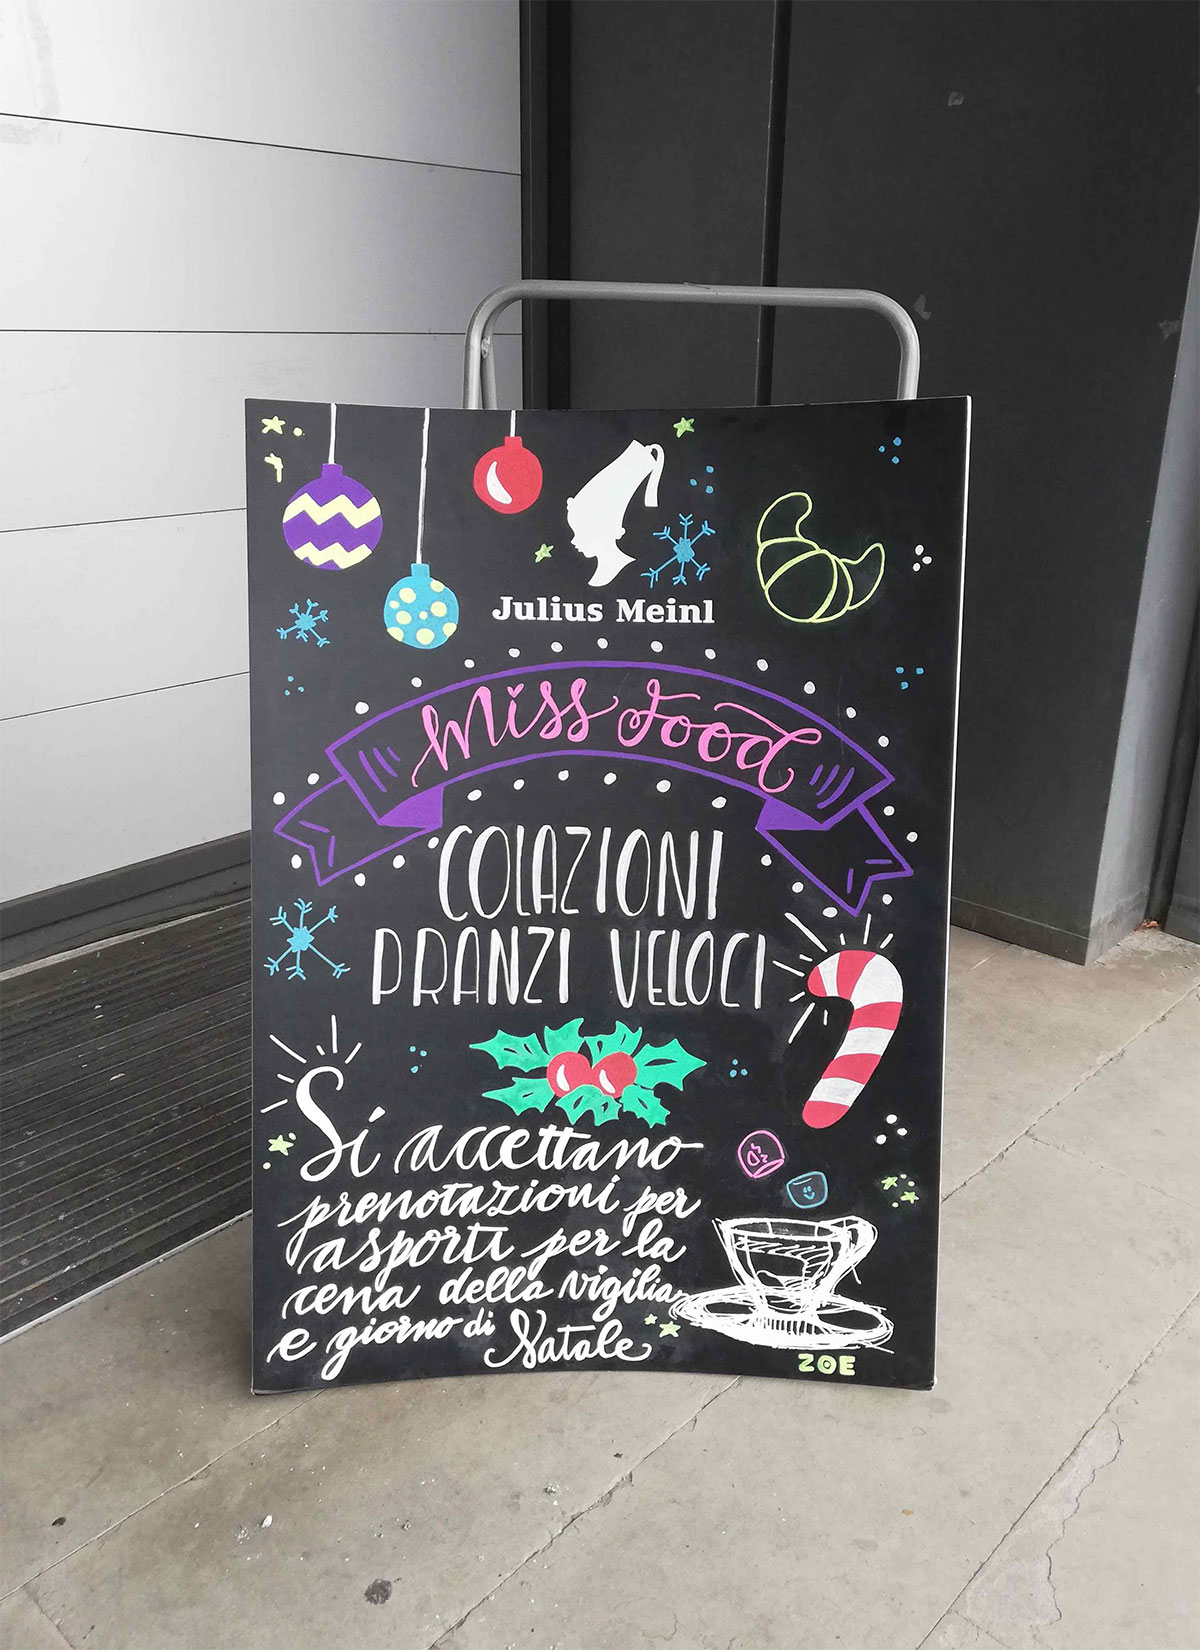 Julius Meinl
Miss Food
COLAZIONI
PRANZI VELOCI
Si accettano
prenotazioni per
asporti per la
cena della vigilia
e giorno di Natale
ZOE